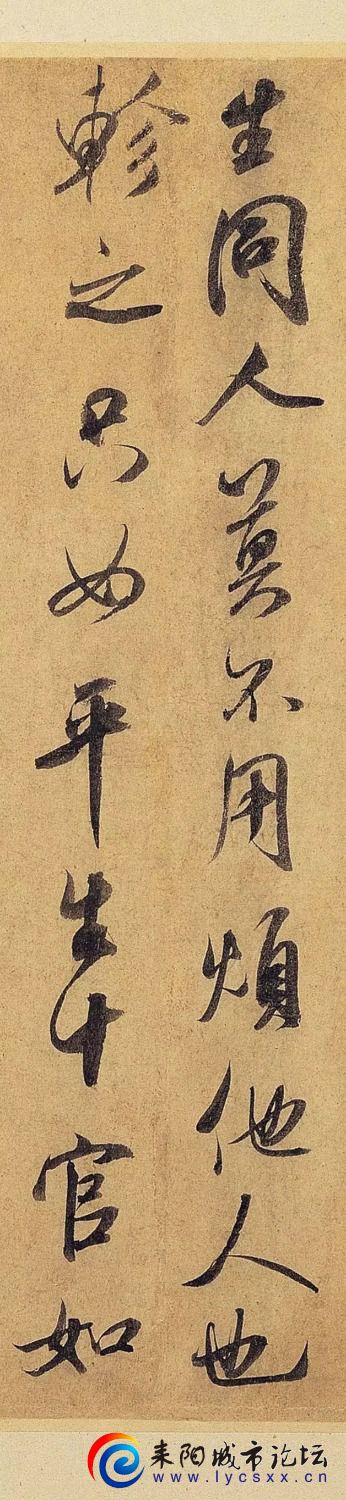 生同人莫不用煩他人也
軫之只如平生十官如
耒阳城市论坛
www.lycsxx.cn